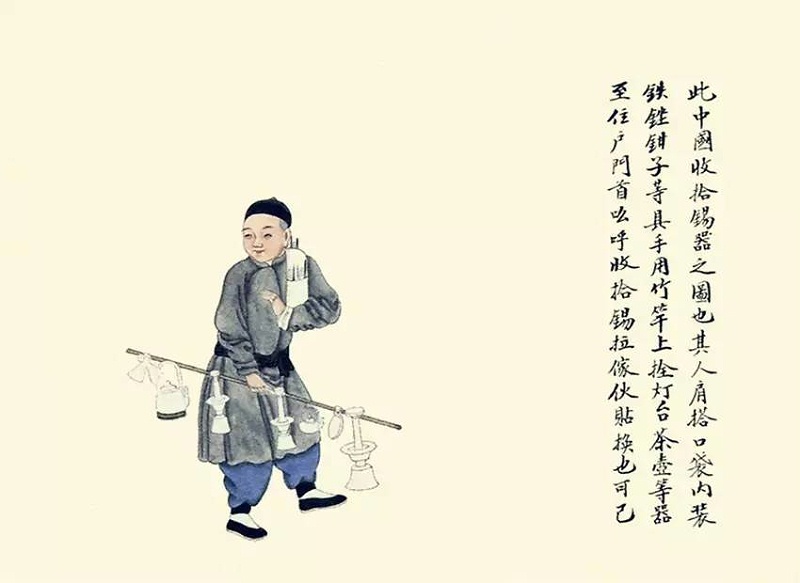 此中國收拾錫器之圖也其人肩搭口袋內装
鉄銼鉗子等具手用竹竿上拴灯台茶壺等器
至住户門首吆呼收拾錫拉傢伙貼換也可已